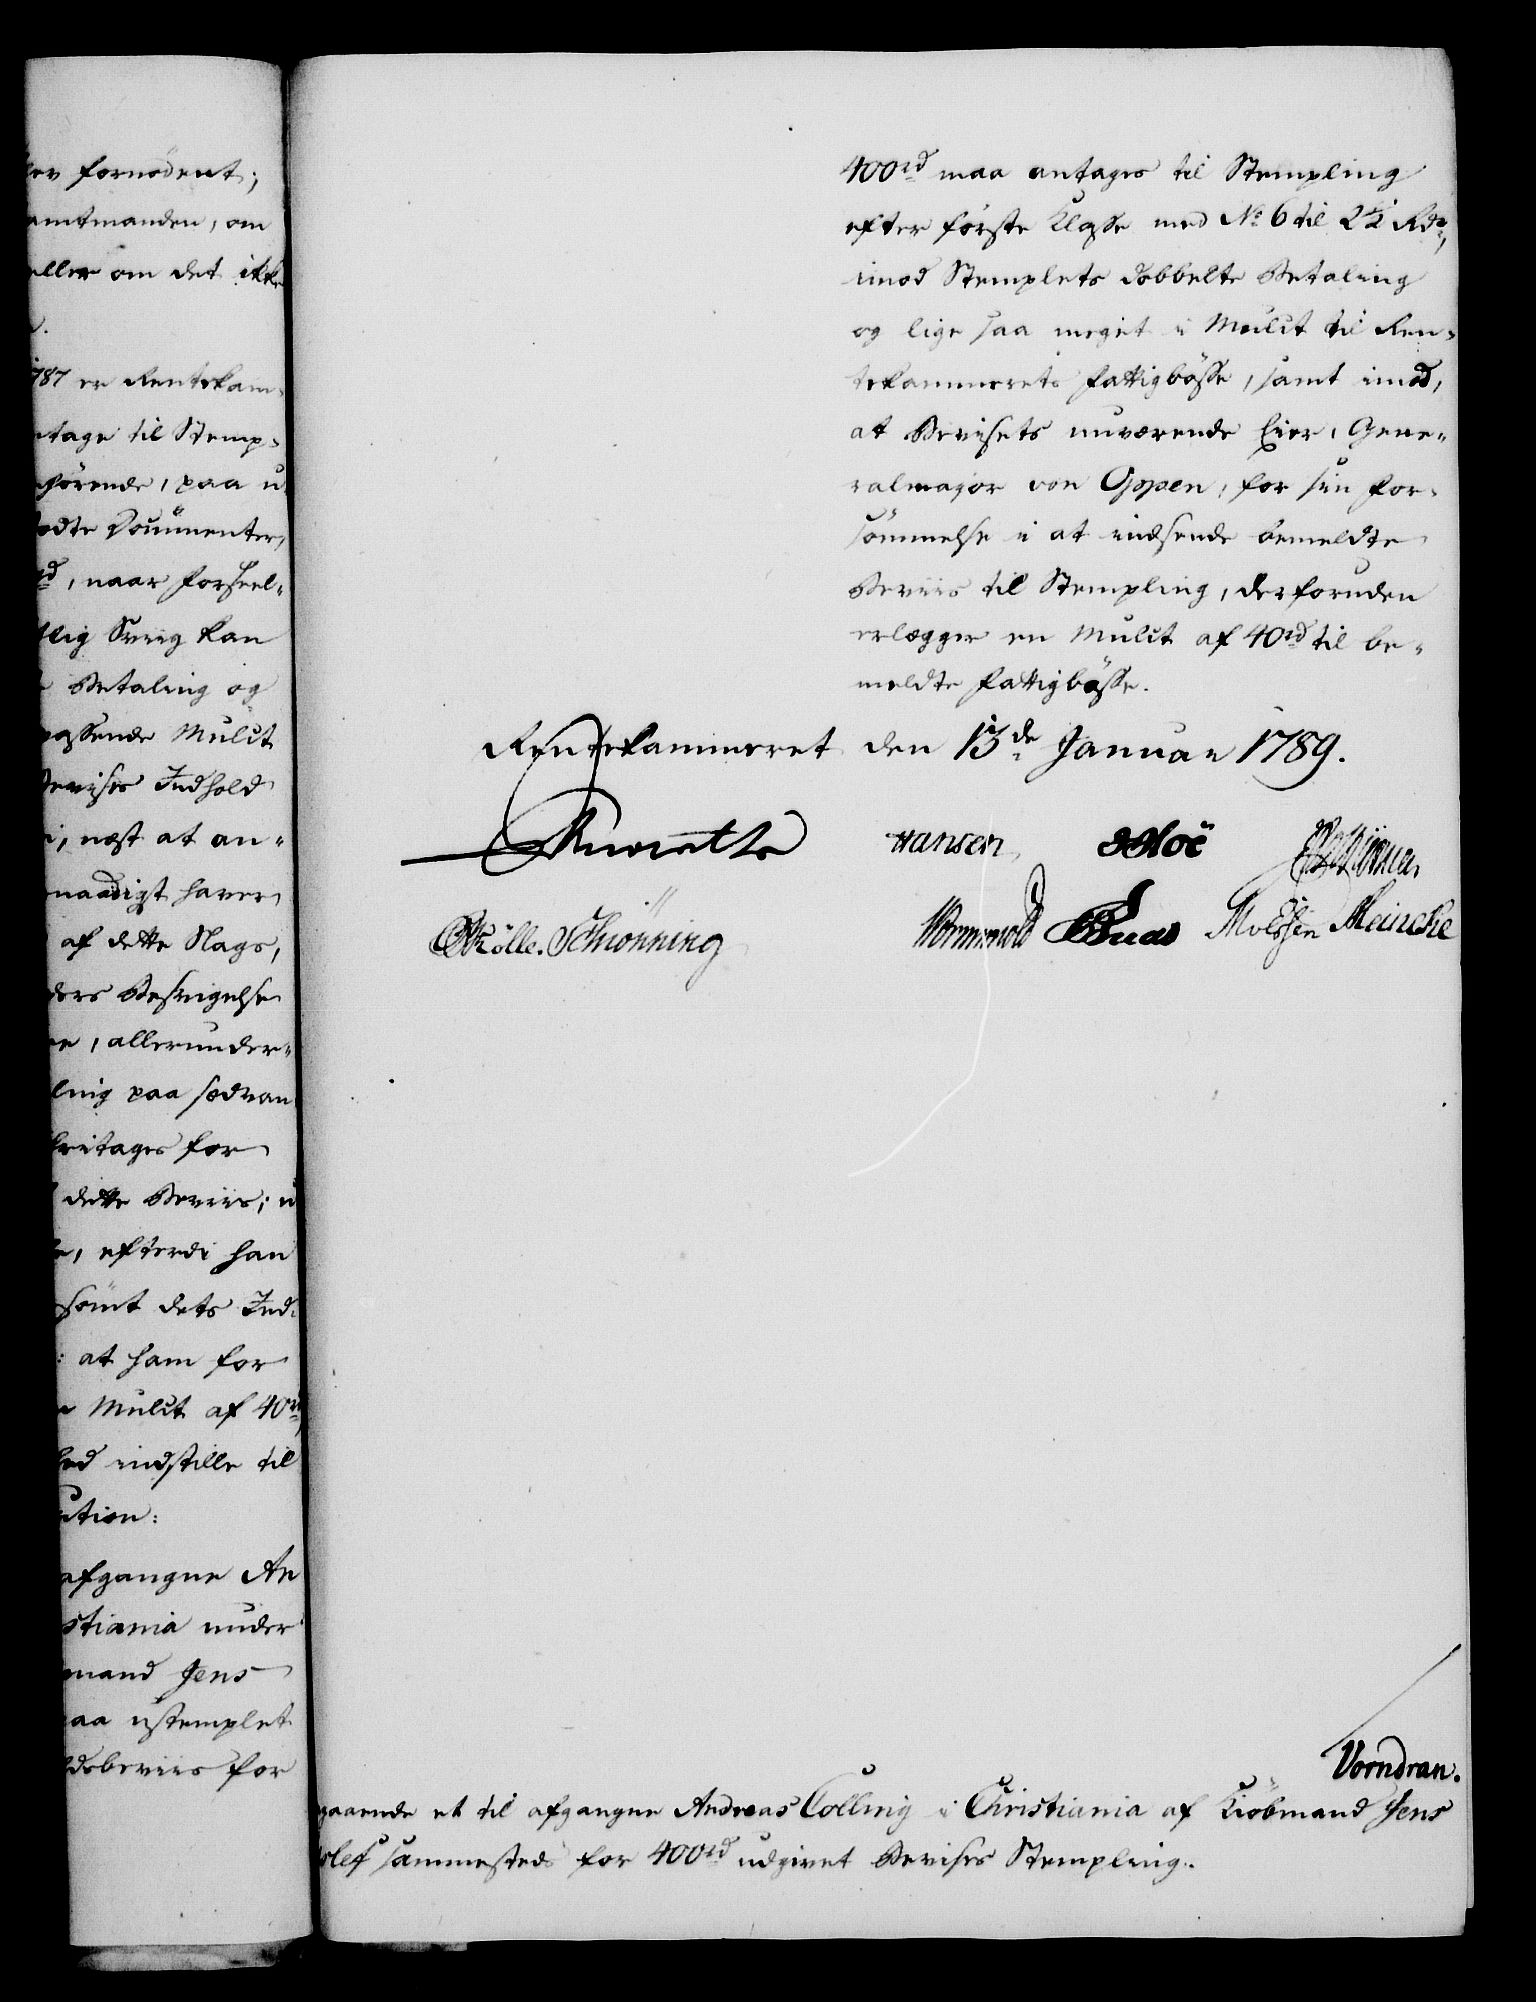 ler fornødent;
amtmanden, om
eller om det ikke
1787 er Rentekam-
ntage til Stemp-
henhørende, paa u
Documenter,
rd, naar forheel-
tlig Sviig kan
Betaling og
passende Mulct
Bevises Indhold
i, næst at an-
naadigst haver
af dette Slags,
ders Besvigelse
ne, allerunder-
ling paa sædvan
fritages for
dette Beviis; u
, efterdi han
sømt dets Ind-
: at ham for
n Mulct af 40rd
hed indstille til
ution:
afgangne An
stiania under
mand Jens
paa ustemplet
ldsbeviis for
400rd maa antages til Stempling
efter første Classe med No 6 til 2½ Rdr,
imod Stemplets dobbelte Betaling
og lige saa meget i Mulct til Ren-
tekammerets Fattigbøsse, samt imod,
at Bevisets nuværende Eier, Gene-
ralmajor von Oppen, for sin For-
sømmelse i at indsende bemeldte
Beviis til Stempling, derforuden
erlægger en Mulct af 40rd til be-
meldte Fattigbøsse.
Rentekammeret den 13de Januar 1789.
Hansen
Schiönning Wormskiold Meincke
Vorndran.
gaaende et til afgangne Andreas Colling i Christiania af Kiøbmand Jens
slef sammesteds for 400rd udgivet Bevises Stempling.